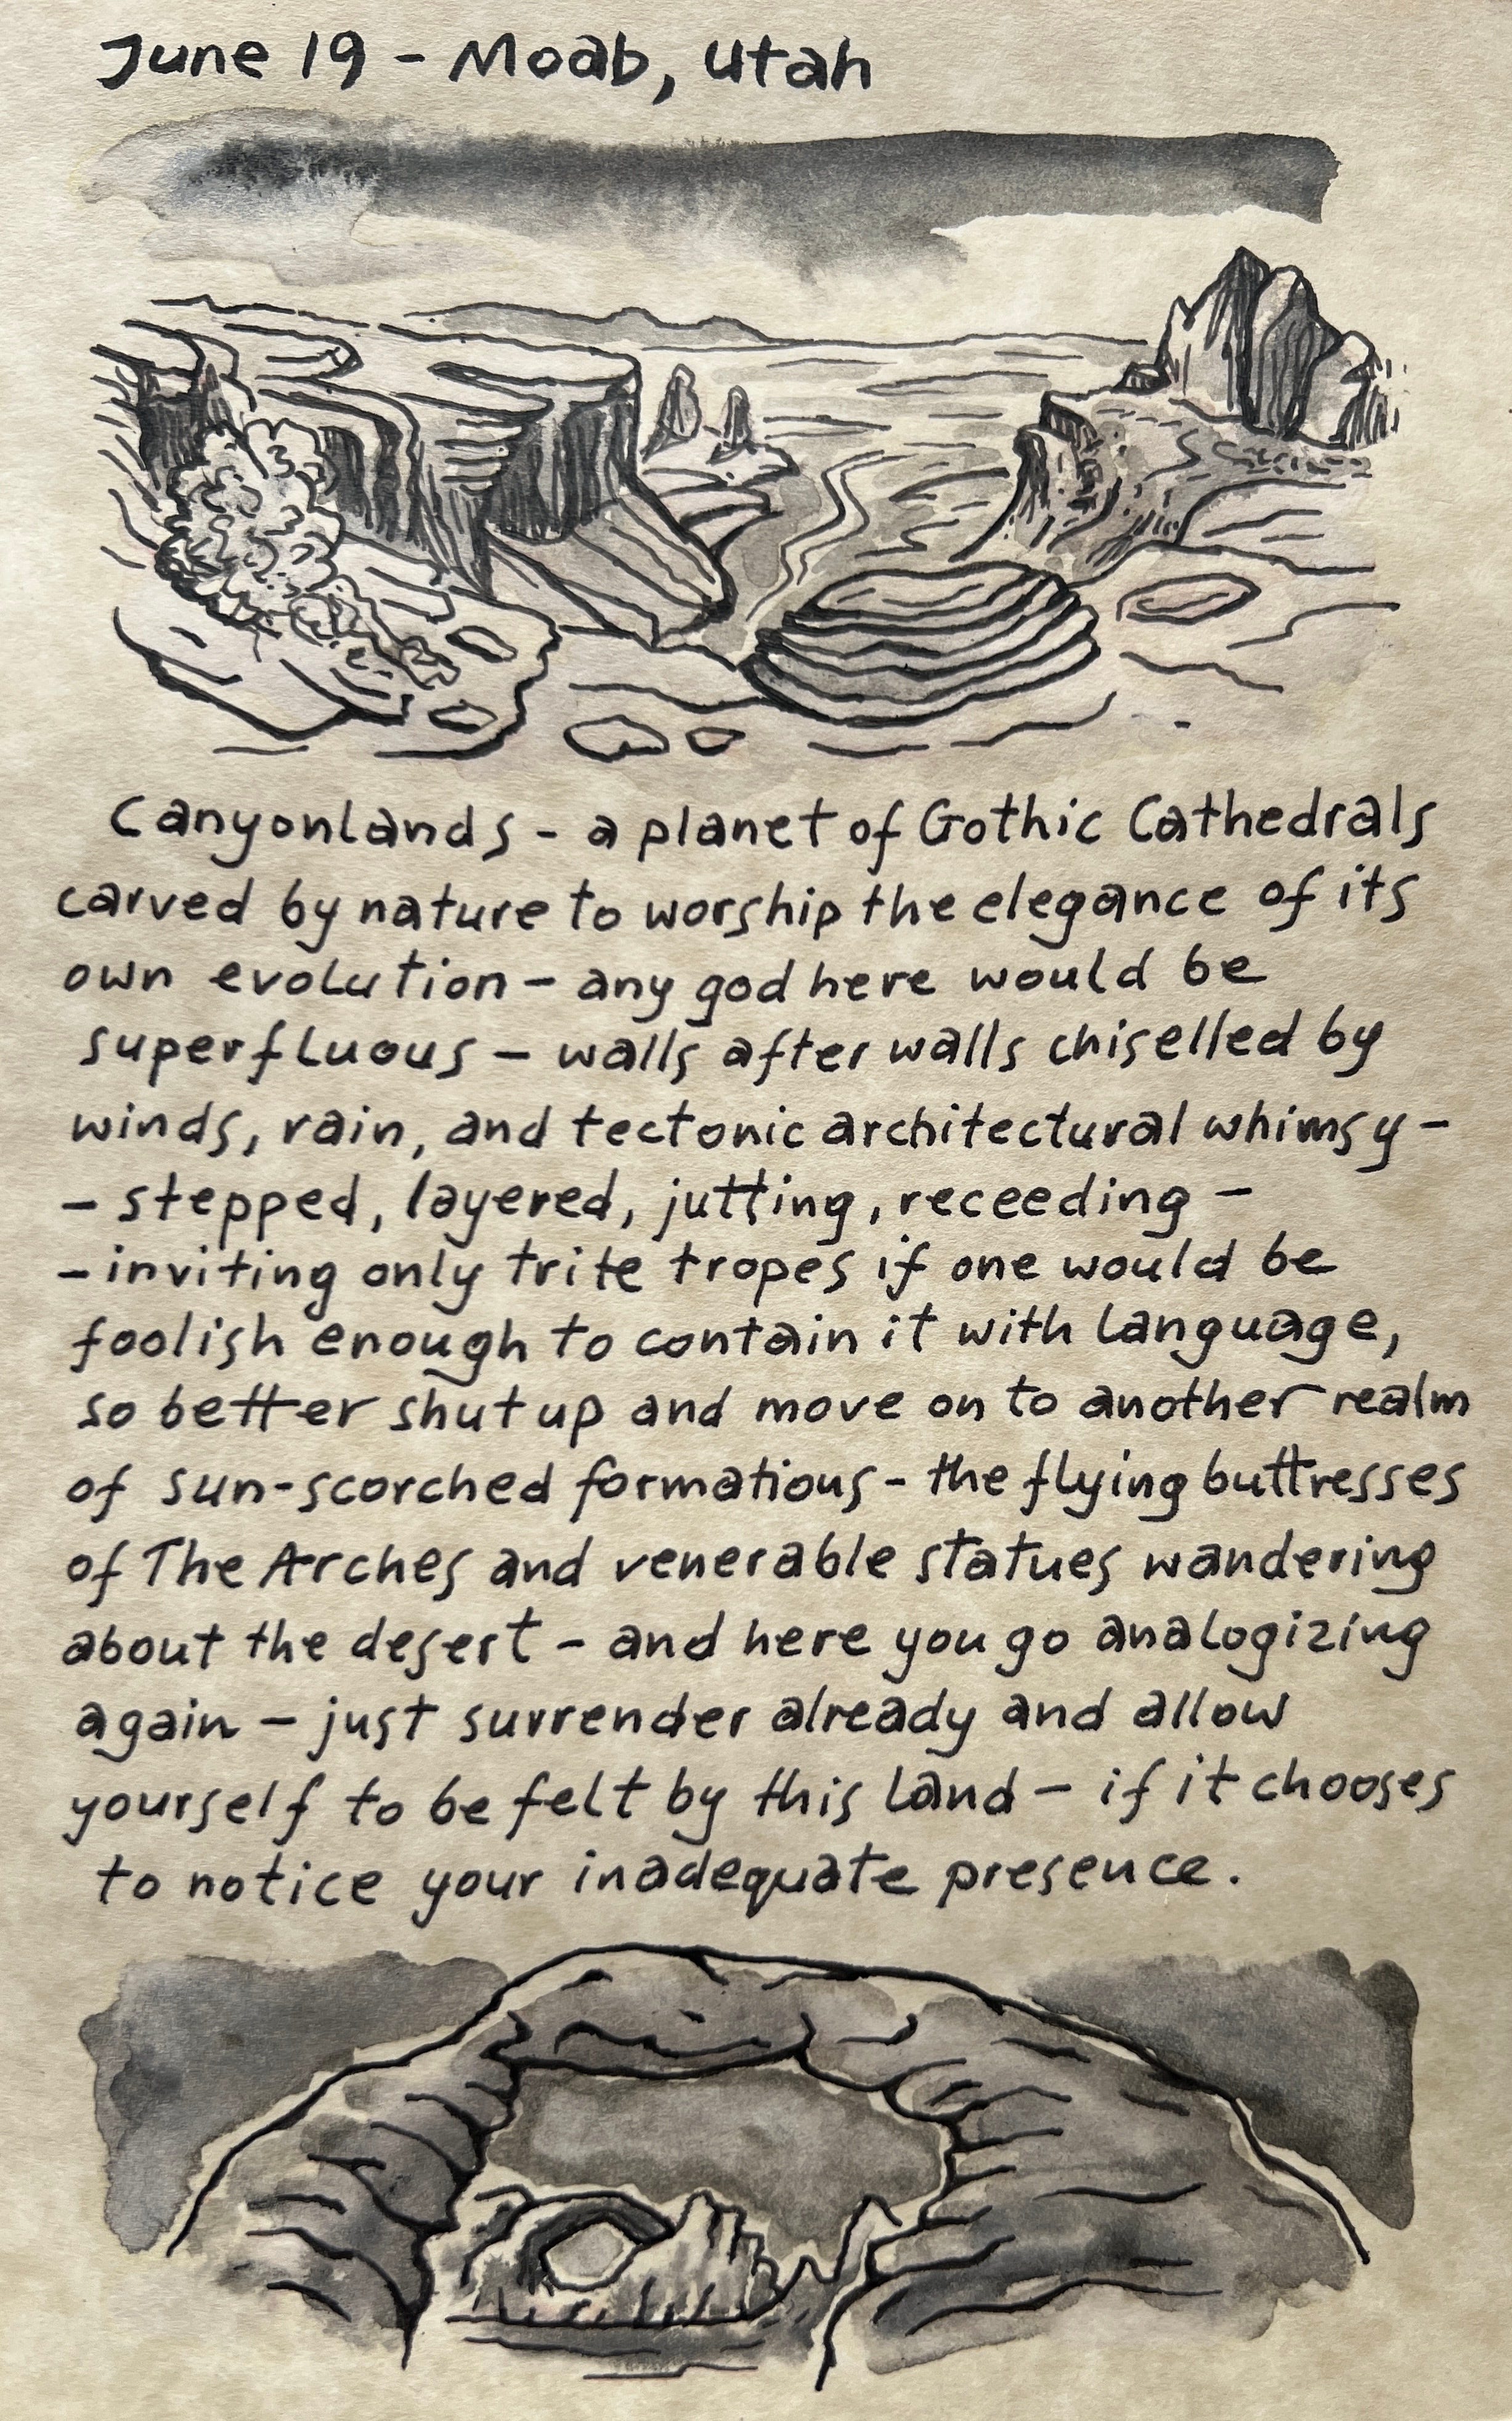 June 19 - Moab, Utah
Canyonlands - a planet of Gothic Cathedrals
carved by nature to worship the elegance of its
own evolution - any god here would be
superfluous - walls after walls chiselled by
winds, rain, and tectonic architectural whimsy -
- stepped, layered, jutting, receeding -
- inviting only trite tropes if one would be
foolish enough to contain it with language,
so better shut up and move on to another realm
of sun-scorched formations - the flying buttresses
of The Arches and venerable statues wandering
about the desert - and here you go analogizing
again - just surrender already and allow
yourself to be felt by this land - if it chooses
to notice your inadequate presence.